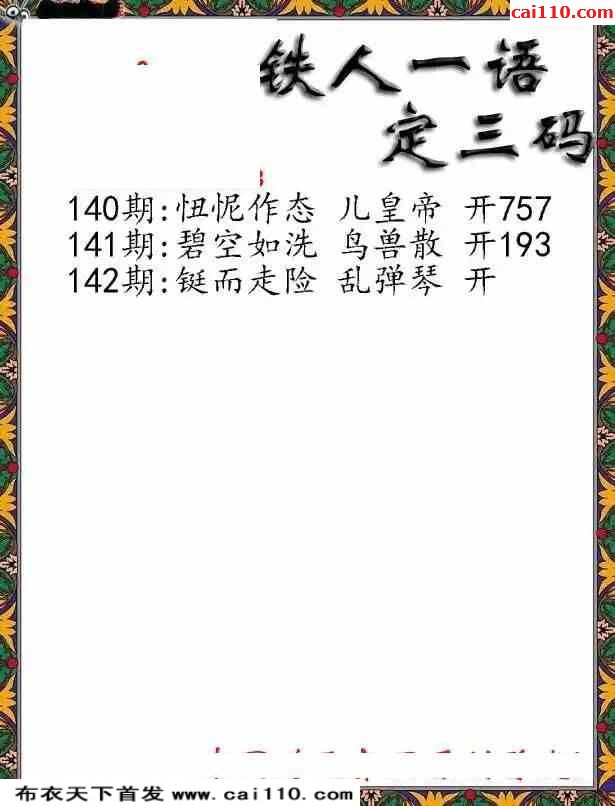 cai110.com
铁人一语
定三码
140期:忸怩作态 儿皇帝 开757
141期:碧空如洗 鸟兽散 开193
142期:铤而走险 乱弹琴 开
布衣天下首发 www.cai110.com